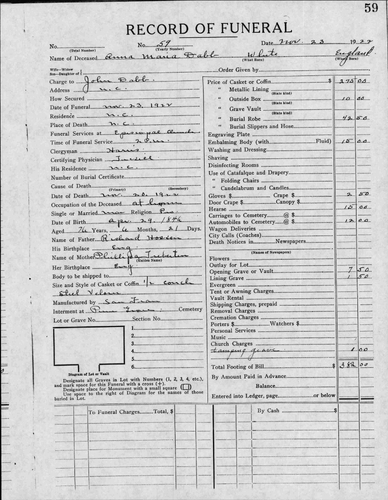 59
RECORD OF FUNERAL
No. No. 59 Date Nov. 23 1922
(Total Number) (Yearly Number)
Name of Deceased Anna Maria Dabb White England
(What Race) (Where Born)
Wife—Widow
Son—Daughter of Order Given by
Charge to John Dabb
Address N.C.
How Secured
Date of Funeral Nov 23 1922
Residence N.C.
Place of Death N.C.
Funeral Services at Episcopal Church
Time of Funeral Service 2 P.M.
Clergyman Harris
Certifying Physician
His Residence N.C.
Number of Burial Certificate
Cause of Death
(Primary) (Secondary)
Date of Death Nov. 20 1922
Occupation of the Deceased At home
Single or Married Religion
Date of Birth Apr. 29, 1846
Aged 76 Years 6 Months 21 Days
Name of Father Richard
His Birthplace Eng
Name of Mother
(Maiden Name)
Her Birthplace Eng
Body to be shipped
Size and Style of Casket or Coffin 1/2 couch
Manufactured by San Fran
Interment at Pine Grove Cemetery
Lot or Grave No. Section No.
Diagram of Lot or Vault
Designate all Graves in Lot with Numbers (1, 2, 3, 4, etc.),
and mark space for this Funeral with a cross (+).
Designate place for Monument with a small square
Use space to right of Diagram for the names of those
buried in Lot.
Price of Casket or Coffin $ 275 00
" Metallic Lining
(State kind)
" Outside Box 10 00
(State kind)
" Grave Vault
(State kind)
" Burial Robe 42 50
(State kind)
" Burial Slippers and Hose
Engraving Plate
Embalming Body (with Fluid) 15 00
Washing and Dressing
Shaving
Disinfecting Rooms
Use of Catafalque and Drapery
" Folding Chairs
" Candelabrum and Candles
Gloves $ Crape $ 2 50
Door Crape Canopy $
Hearse 15 00
Carriages to Cemetery @ $
Automobiles to Cemetery @ $ 12 00
Wagon Deliveries
City Calls (Coaches)
Death Notices in Newspapers
(Names of Newspapers)
Flowers
Outlay for Lot
Opening Grave or Vault 7 50
Lining Grave 1 50
Evergreen
Tent or Awning Charges
Vault Rental
Shipping Charges, prepaid
Removal Charges
Cremation Charges
Porters $ Watchers $
Personal Services
Music
Church Charges
grave 1 00
Total Footing of Bill $ 382 00
By Amount Paid in Advance
Balance
Entered into Ledger, page or below.
To Funeral Charges Total, $ By Cash $